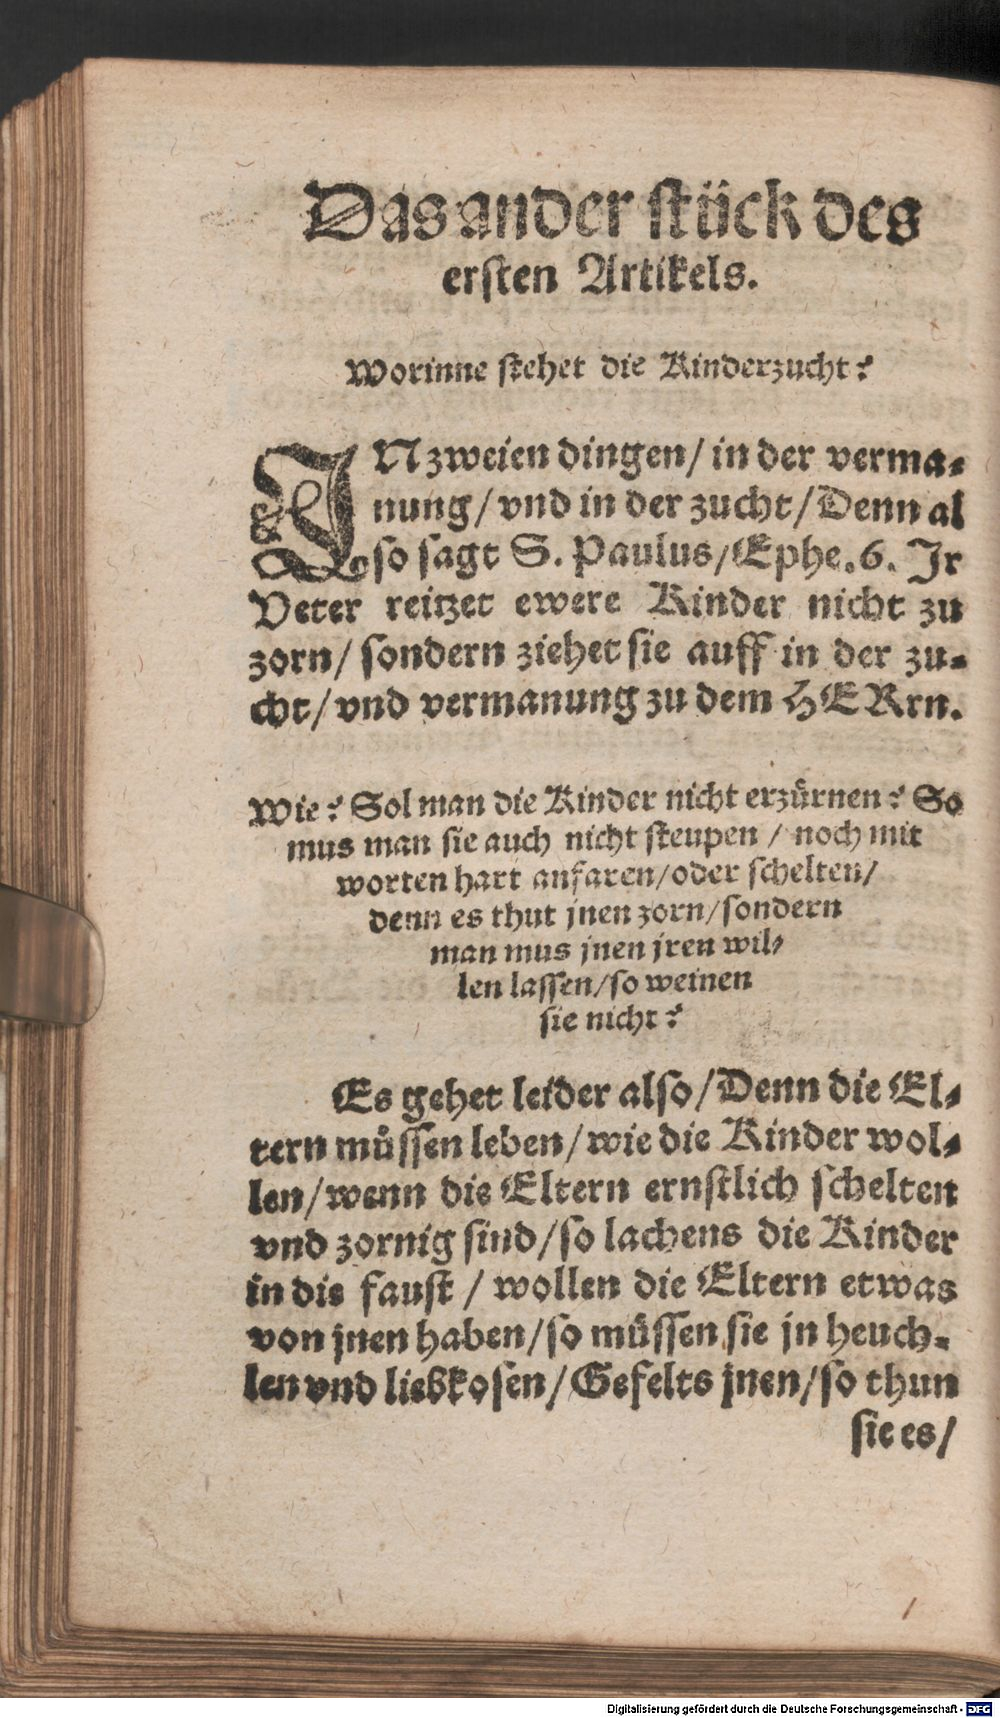 Das ander stück des
ersten Artikels.
Worinne stehet die Kinderzucht?
IN zweien dingen/ in der verma-
nung/ vnd in der zucht/ Denn al
so sagt S. Paulus/ Ephe. 6. Jr
Veter reitzet ewere Kinder nicht zu
zorn/ sondern ziehet sie auff in der zu-
cht/ vnd vermanung zu dem HERrn.
Wie? Sol man die Kinder nicht erzürnen? So
mus man sie auch nicht steupen / noch mit
worten hart anfaren/ oder schelten/
denn es thut jnen zorn/ sondern
man mus jnen jren wil-
len lassen/ so weinen
sie nicht?
Es gehet leider also/ Denn die El-
tern müssen leben/ wie die Kinder wol-
len/ wenn die Eltern ernstlich schelten
vnd zornig sind/ so lachens die Kinder
in die faust / wollen die Eltern etwas
von jnen haben/ so müssen sie jn heuch-
len vnd liebkosen/ Gefelts jnen/ so thun
sie es/
Digitalisierung gefördert durch die Deutsche Forschungsgemeinschaft - DFG